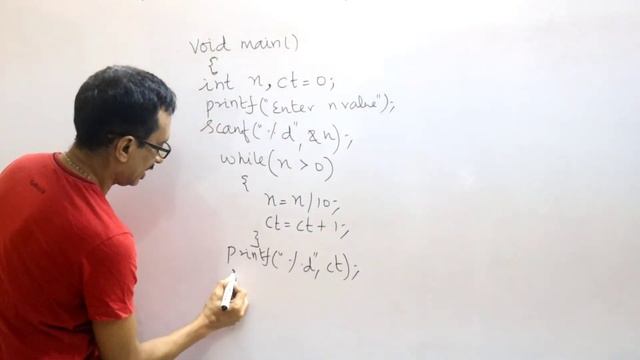 void main()
{
int n, ct=0;
printf("Enter n value");
scanf("%d", &n);
while(n > 0)
{
n = n/10;
ct = ct + 1;
}
printf("%d", ct);